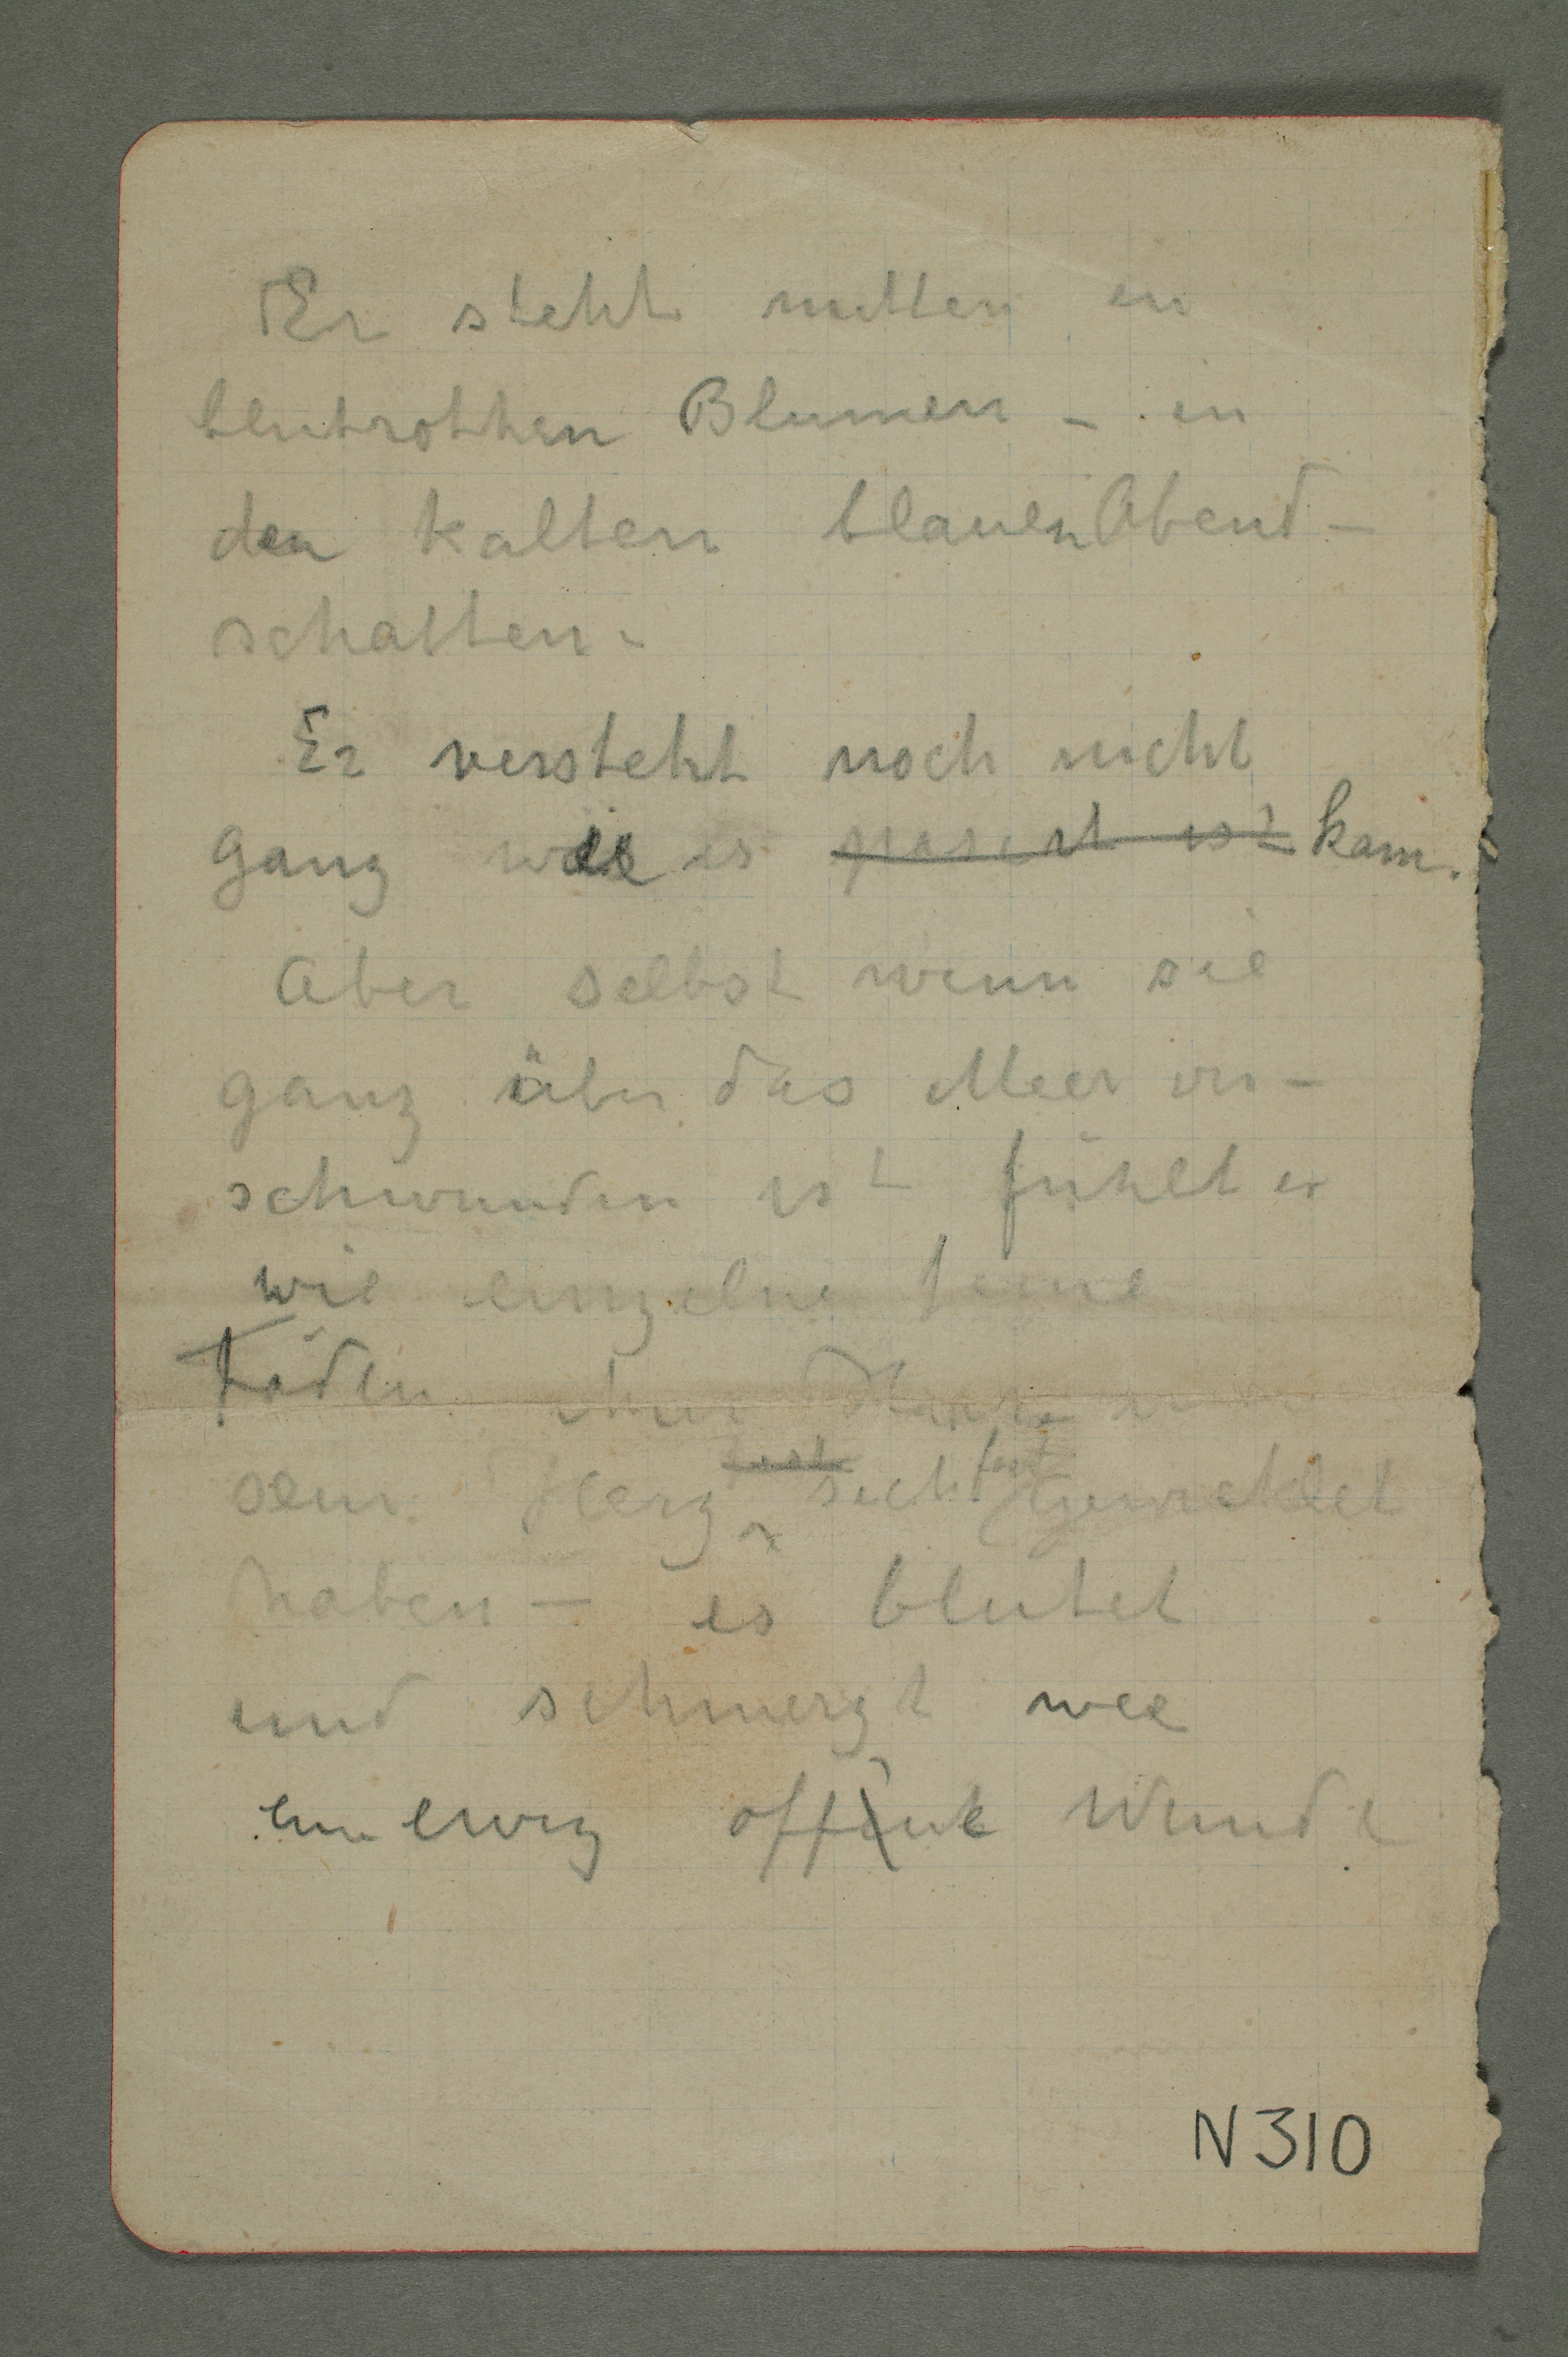 Er steht mitten in
blutrothen Blumen – in
den kalten blauen Abend–
schatten.
Er versteht noch nicht
ganz wie es pasirt ist kam.
Aber selbst wenn sie
ganz über das Meer ver–
schwunden ist fühlt er
wie einzelne feine
Fäden ihrer Haare
sein Herz fest sich fest gewickelt
haben – es blutet
und schmerzt wie
eine ewig offne Wunde
N 310